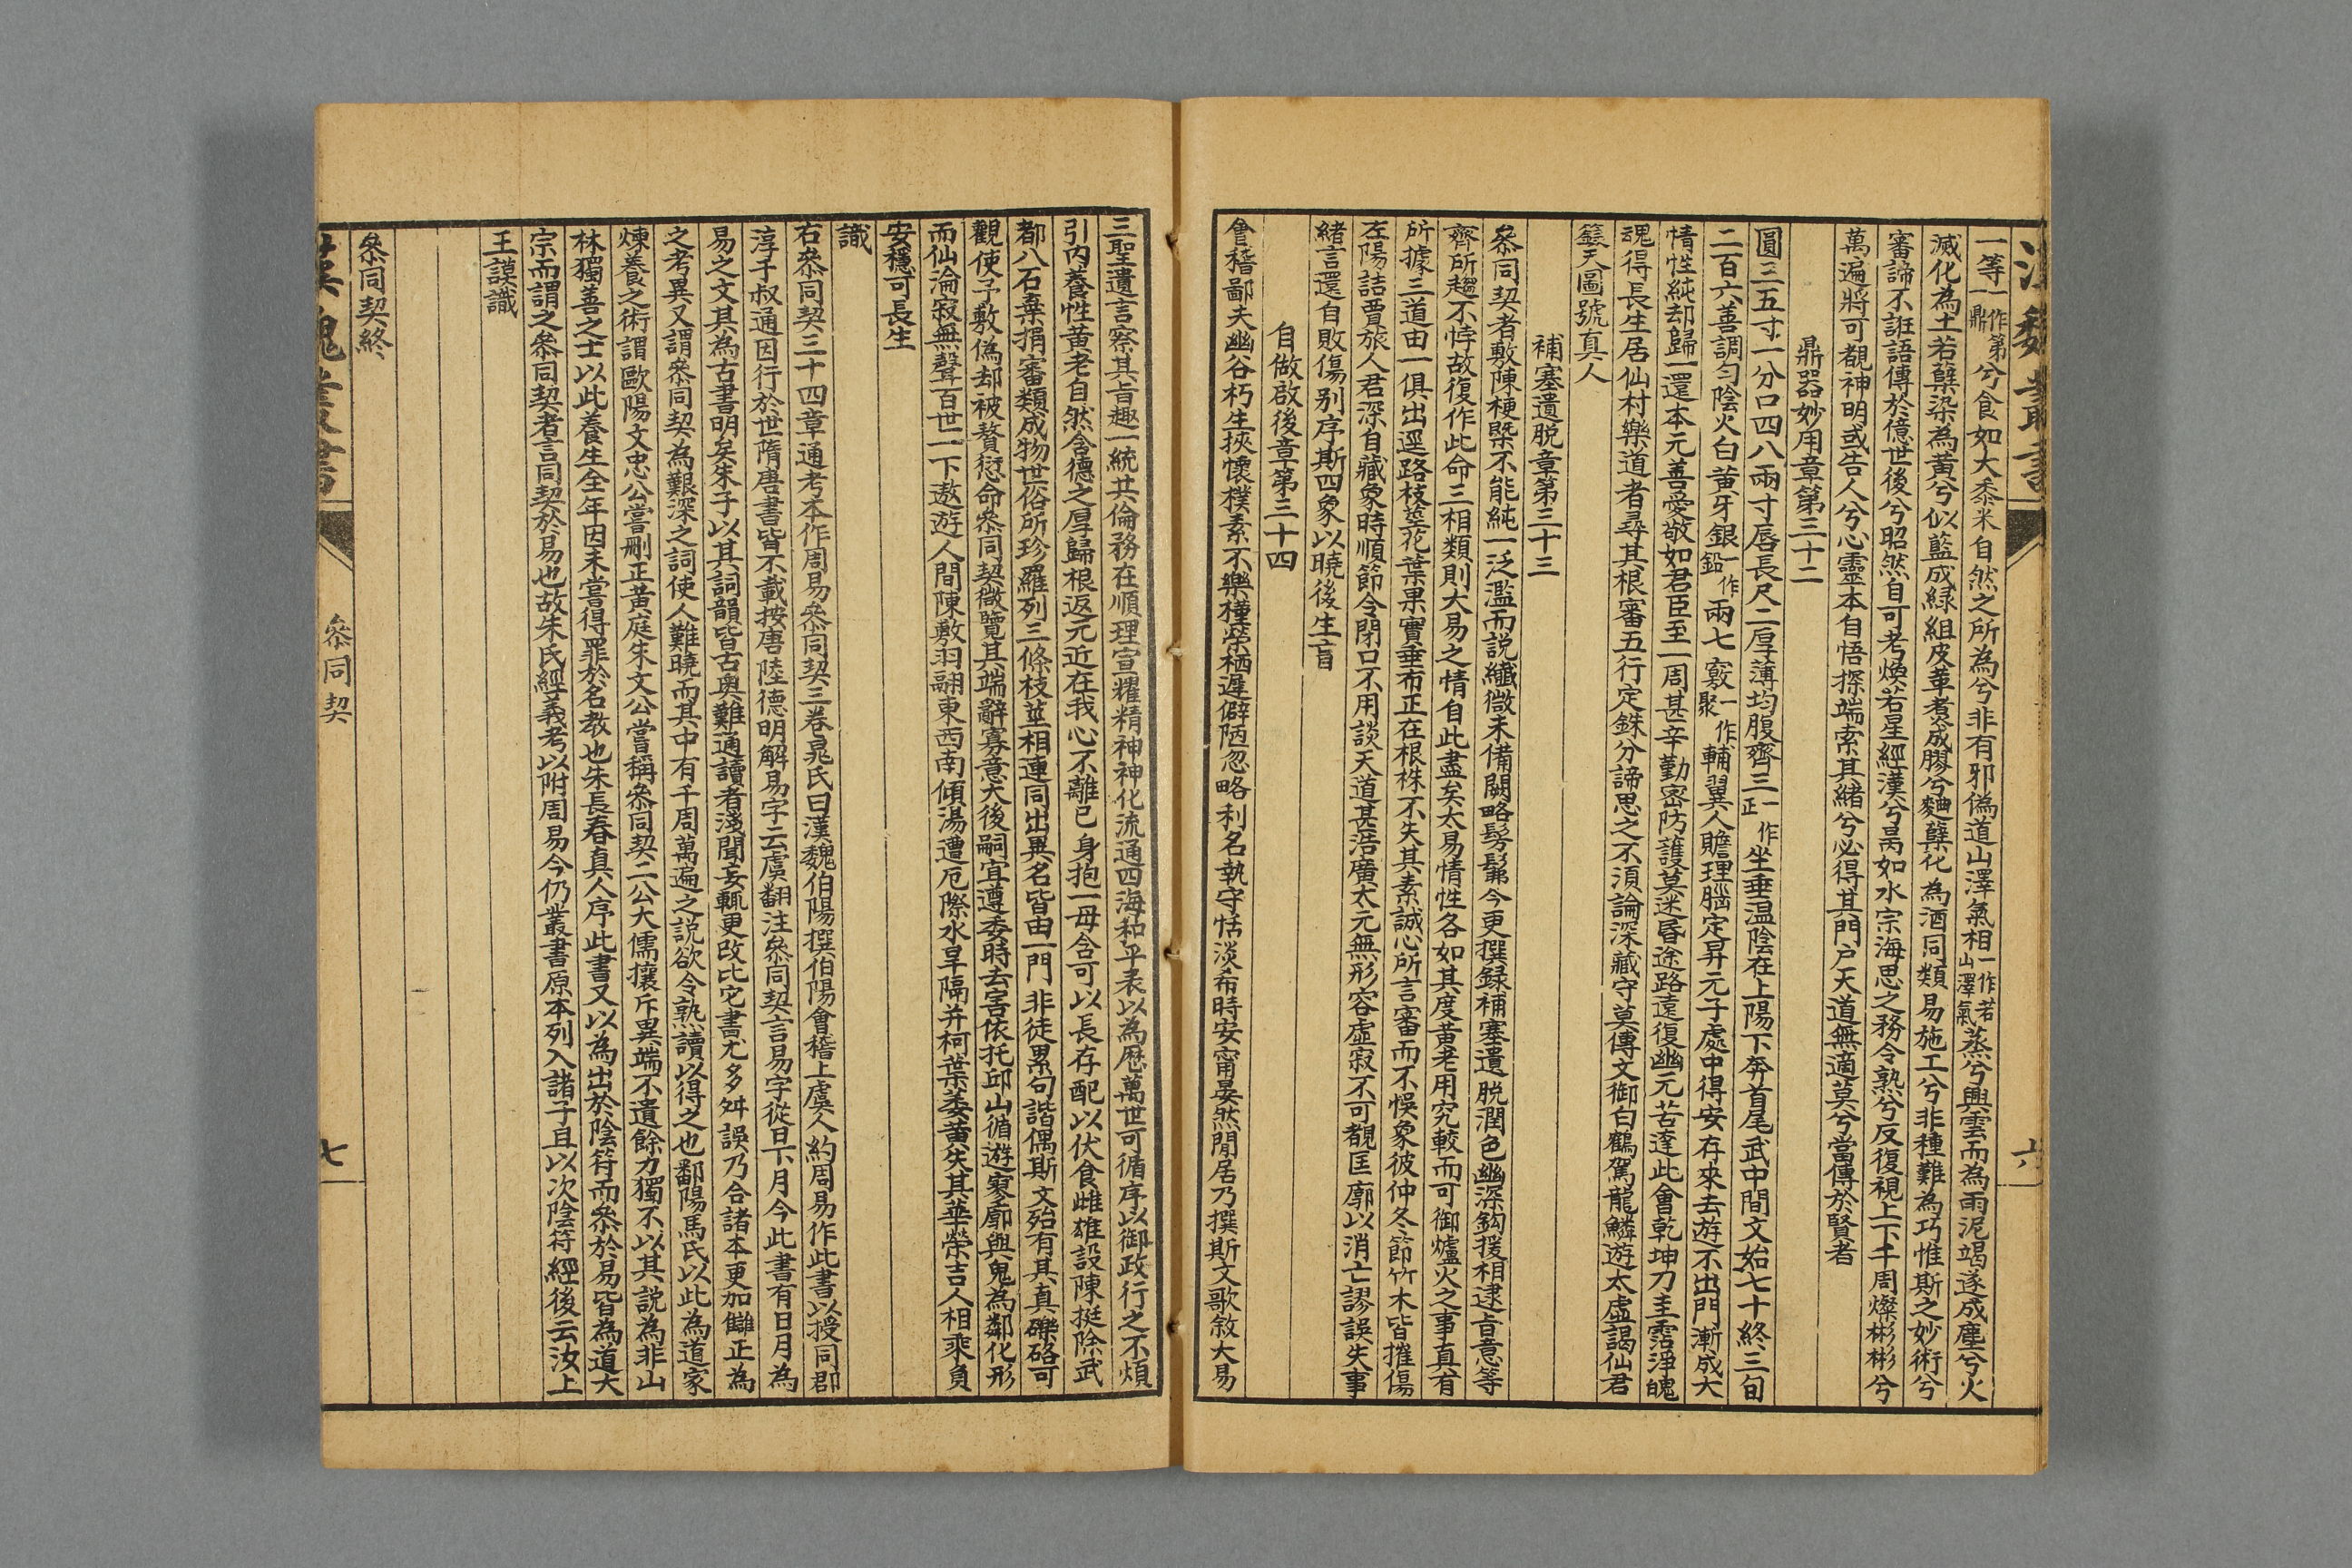 一等一作鼎第一兮食如大黍米自然之所為兮非有邪偽道山澤氣相一作若山澤氣蒸兮興雲而為雨泥竭遂成塵兮火
滅化為土若蘖染為黃兮似藍成緑組皮革煮成膠兮麯蘖化為酒同類易施工兮非種難為巧惟斯之妙術兮
審諦不誑語傳於億世後兮昭然自可考煥若星經漢兮昺如水宗海思之務令熟兮反復視上下千周燦彬彬兮
萬遍將可覩神明或告人兮心靈本自悟探端索其緒兮必得其門戶天道無適莫兮當傳於賢者
鼎器妙用章第三十二
圓三五寸一分口四八兩寸唇長尺二厚薄均腹齊三一作正坐垂温陰在上陽下奔首尾武中間文始七十終三旬
二百六善調勻陰火白黃牙銀一作鉛兩七竅一作聚輔翼人贍理腦定昇元子處中得安存來去遊不出門漸成大
情性純却歸一還本元善愛敬如君臣至一周甚辛勤密防護莫迷昏途路遠復幽元若達此會乾坤刀圭霑淨魄
魂得長生居仙村樂道者尋其根審五行定銖分諦思之不湏論深藏守莫傳文御白鶴駕龍鱗遊太虛謁仙君
籙天圖號真人
補塞遺脫章第三十三
叅同契者敷陳梗槩不能純一泛濫而說纖微未備闊略髣髴今更撰録補塞遺脫潤色幽深鈎援相逮旨意等
齊所趨不悖故復作此命三相類則大易之情自此盡矣太易情性各如其度黃老用究較而可御爐火之事真有
所據三道由一俱出逕路枝莖花葉果實垂布正在根株不失其素誠心所言審而不悞象彼仲冬節竹木皆摧傷
在陽詰賈旅人君深自藏象時順節令閉口不用談天道甚浩廣太元無形容虛寂不可覩匡廓以消亡謬誤失事
緒言還自敗傷别序斯四象以曉後生盲
自做啟後章第三十四
會稽鄙夫幽谷朽生挾懷樸素不樂權榮栖遲僻陋忽略利名執守恬淡希時安甯晏然閒居乃撰斯文歌敘大易
三聖遺言察其旨趣一統共倫務在順理宣耀精神神化流通四海和平表以為厯萬世可循序以御政行之不煩
引內養性黃老自然含德之厚歸根返元近在我心不離已身抱一毋舍可以長存配以伏食雌雄設陳挺除武
都八石棄捐審類成物世俗所珍羅列三條枝莖相連同出異名皆由一門非徒累句諧偶斯文殆有其真礫硌可
觀使予敷偽却被贅愆命叅同契微覽其端辭寡意大後嗣宜遵委時去害依托邱山循遊寥廓與鬼為鄰化形
而仙淪寂無聲百世一下遨遊人間陳敷羽翮東西南傾湯遭厄際水旱隔并柯葉萎黃失其華榮吉人相乘負
安穩可長生
識
右叅同契三十四章通考本作周易叅同契三卷晁氏曰漢魏伯陽撰伯陽會稽上虞人約周易作此書以授同郡
淳于叔通因行於世隋唐書皆不載按唐陸德明解易字云虞翻注叅同契言易字從日下月今此書有日月為
易之文其為古書明矣朱子以其詞韻皆古奧難通讀者淺聞妄輒更改比它書尤多舛誤乃合諸本更加讎正為
之考異又謂叅同契為艱深之詞使人難曉而其中有千周萬遍之說欲令熟讀以得之也鄱陽馬氏以此為道家
煉養之術謂歐陽文忠公嘗刪正黃庭朱文公嘗稱叅同契二公大儒攘斥異端不遺餘力獨不以其說為非山
林獨善之士以此養生全年因未嘗得罪於名教也朱長春真人序此書又以為出於陰符而叅於易皆為道大
宗而謂之叅同契者言同契於易也故朱氏經義考以附周易今仍叢書原本列入諸子且以次陰符經後云汝上
王謨識
叅同契終
漢魏叢書
叅同契
七
六